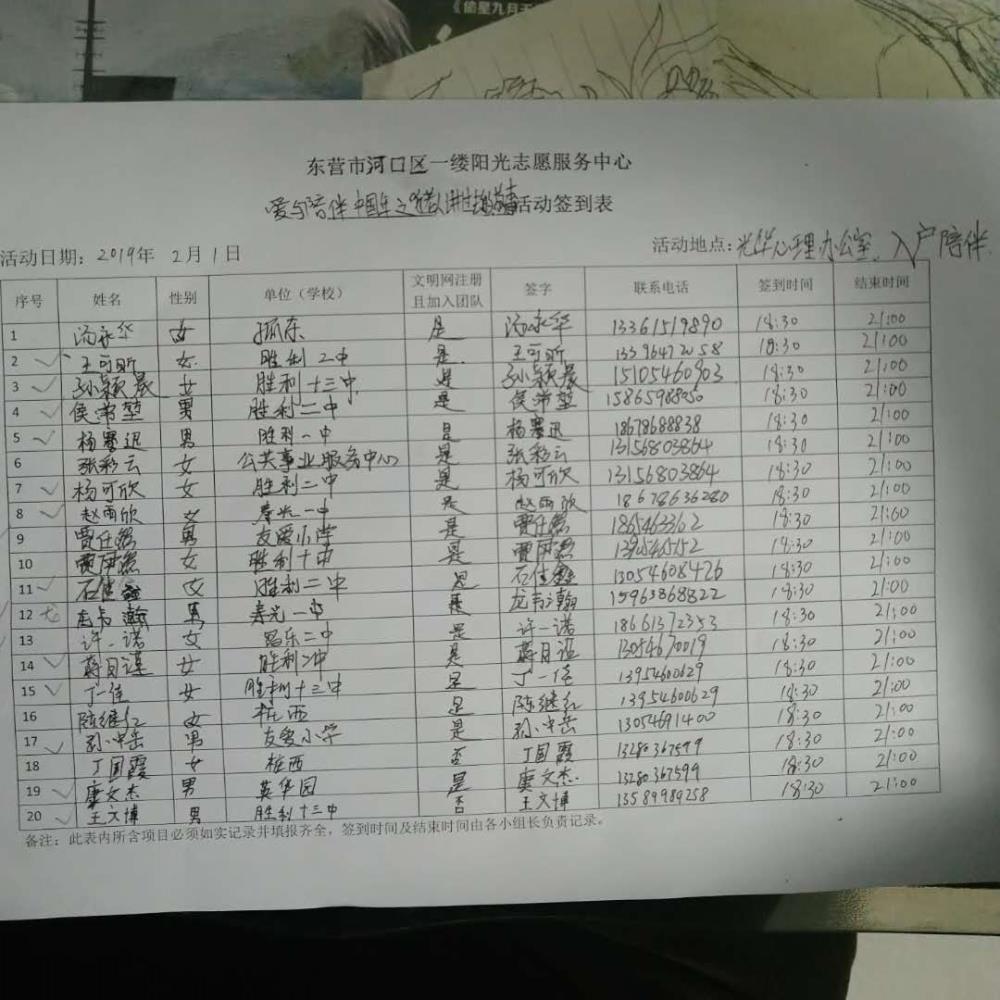 《偷星九月天
东营市河口区一缕阳光志愿服务中心
爱与陪伴中国年之 活动签到表
活动日期：2019年 2月1日 活动地点：光华心理办公室，入户陪伴
序号 姓名 性别 单位（学校） 文明网注册且加入团队 签字 联系电话 签到时间 结束时间
1 汤永华 女 孤东 是 汤永华 13361519890 18:30 21:00
2 王可昕 女 胜利二中 是 王可昕 13396472058 18:30 21:00
3 孙颖晨 女 胜利十三中 是 孙颖晨 15105460903 18:30 21:00
4 侯沛堃 男 胜利二中 是 侯沛堃 15865988050 18:30 21:00
5 杨骞迅 男 胜利一中 是 杨骞迅 18678688838 18:30 21:00
6 张彩云 女 公共事业服务中心 是 张彩云 13156803864 18:30 21:00
7 杨可欣 女 胜利二中 是 杨可欣 13156803864 18:30 21:00
8 赵雨欣 女 寿光一中 是 赵雨欣 18678636280 18:30 21:00
9 男 友爱小学 是 18:30 21:00
10 女 胜利十中 是 18:30 21:00
11 女 胜利二中 是 13054608426 18:30 21:00
12 男 寿光一中 是 龙韦瀚 15963868822 18:30 21:00
13 许一诺 女 昌乐二中 是 许一诺 18661372353 18:30 21:00
14 女 是 13054670019 18:30 21:00
15 丁一佳 女 胜利十三中 是 丁一佳 13954600629 18:30 21:00
16 陈继红 女 桩西 是 陈继红 13954600629 18:30 21:00
17 孙中岳 男 友爱小学 是 孙中岳 13054691400 18:30 21:00
18 丁国霞 女 桩西 否 丁国霞 13280367599 18:30 21:00
19 康文杰 男 英华园 是 康文杰 13280367599 18:30 21:00
20 王文博 男 胜利十三中 否 王文博 13589989258 18:30 21:00
备注：此表内所含项目必须如实记录并填报齐全，签到时间及结束时间由各小组长负责记录。